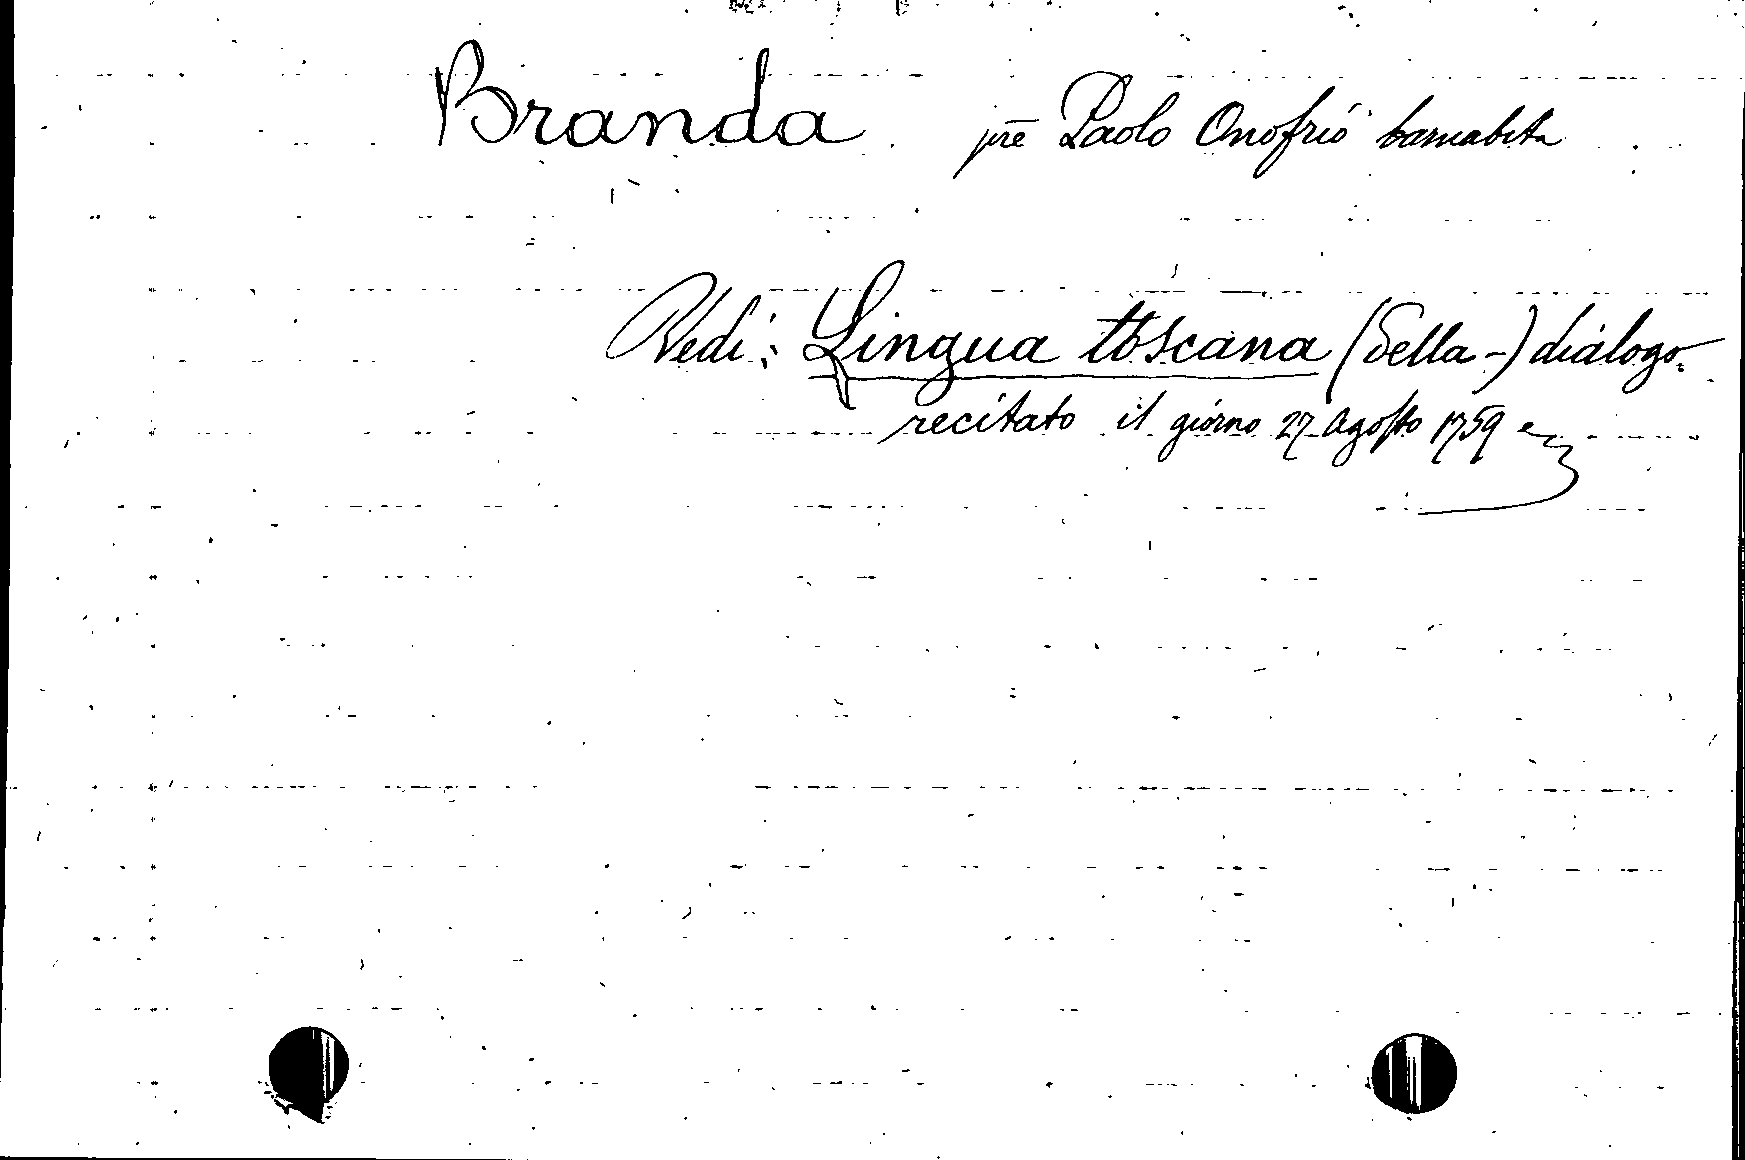 Branda pre Paolo Onofrio barnabita
Vedi: Lingua toscana (della -) dialogo
recitato il giorno 27 Agosto 1759